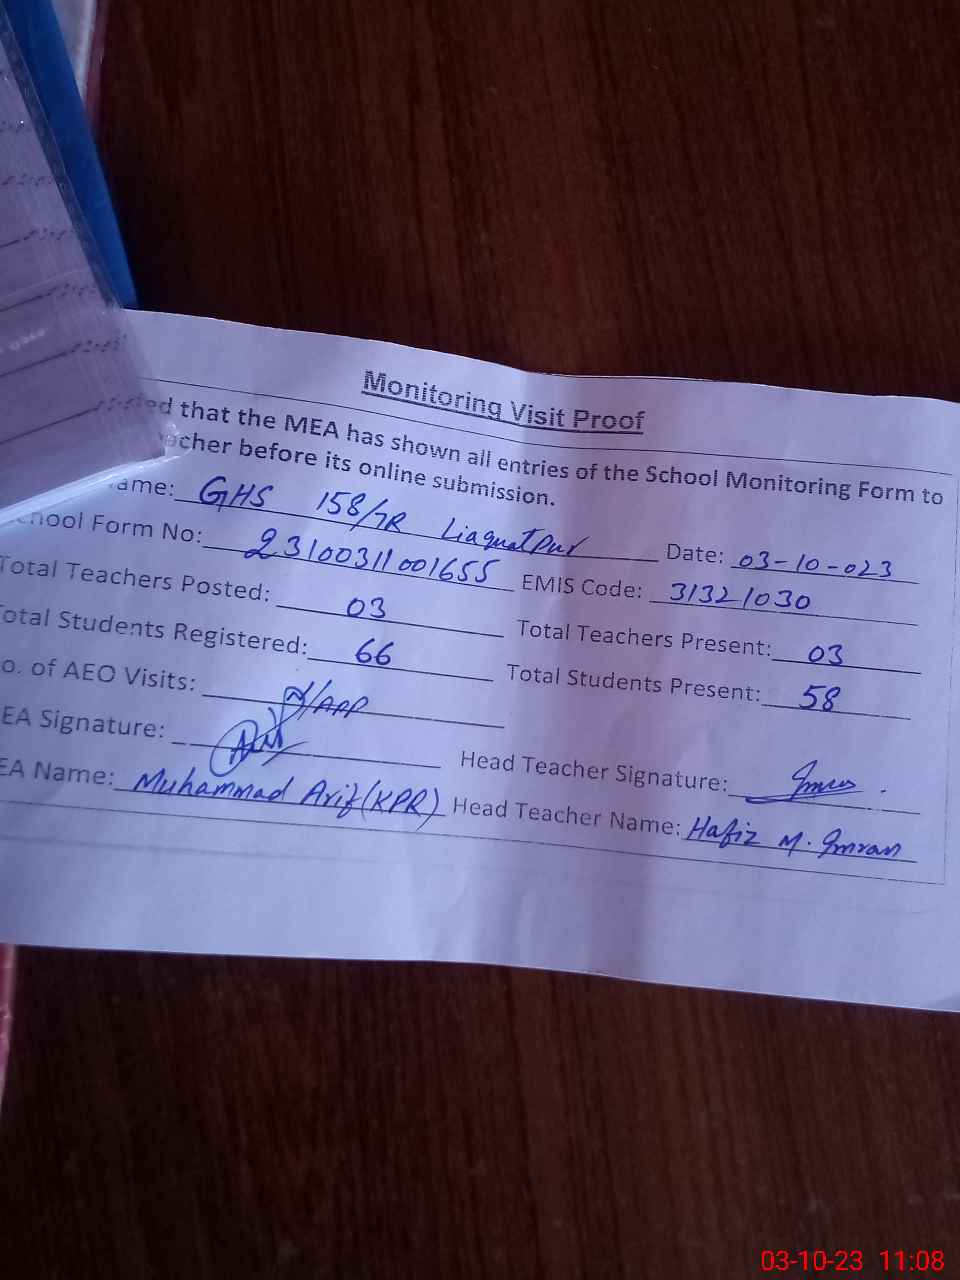 Monitoring Visit Proof
ed that the MEA has shown all entries of the School Monitoring Form to
acher before its online submission.
ame: GHS 158/7R Liaquatpur Date: 03-10-023
hool Form No: 23100311001655 EMIS Code: 31321030
Total Teachers Posted: 03 Total Teachers Present: 03
otal Students Registered: 66 Total Students Present: 58
o. of AEO Visits: N/APP
EA Signature: Head Teacher Signature:
EA Name: Muhammad Arif (KPR) Head Teacher Name: Hafiz M. Imran
03-10-23 11:08